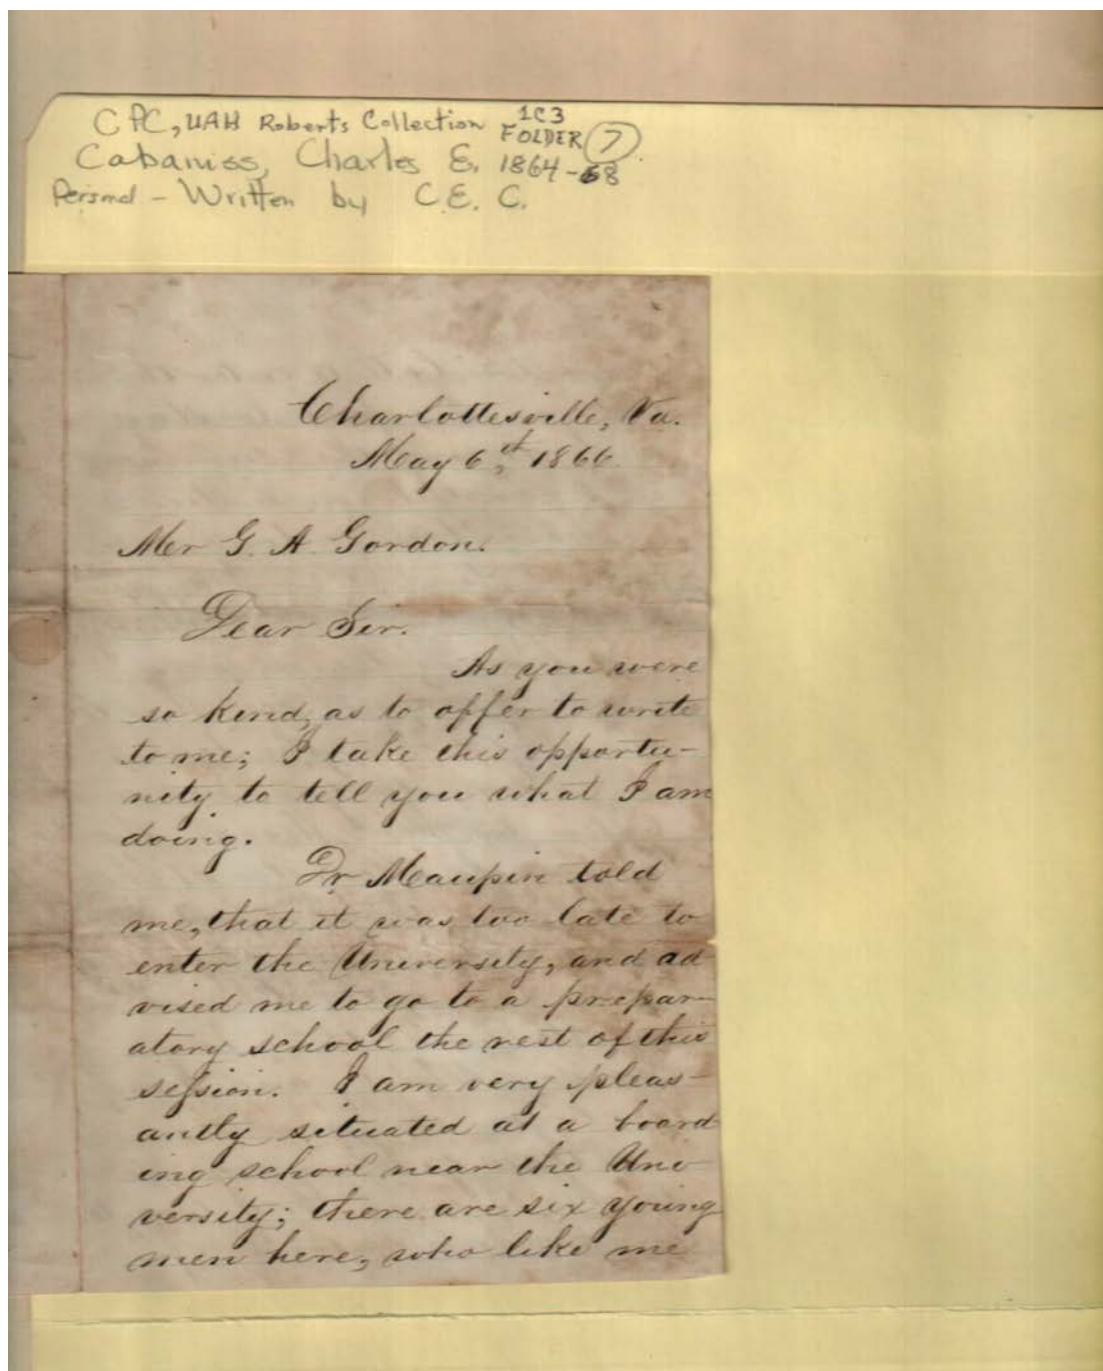 CPC, UAH Roberts Collection 1C3
FOLDER 7
Cabaniss, Charles E. 1864-68
Personal - Written by C.E. C.
Charlottesville, Va.
May 6th, 1866
Mr G. A. Gordon.
Dear Sir.
As you were
so kind, as to offer to write
to me; I take this opportu-
nity to tell you what I am
doing.
Dr Maupin told
me, that it was too late to
enter the University, and ad
vised me to go to a prepar-
atory school the rest of this
session. I am very pleas-
antly situated at a board
ing school near the Uni
versity; there are six young
men here, who like me